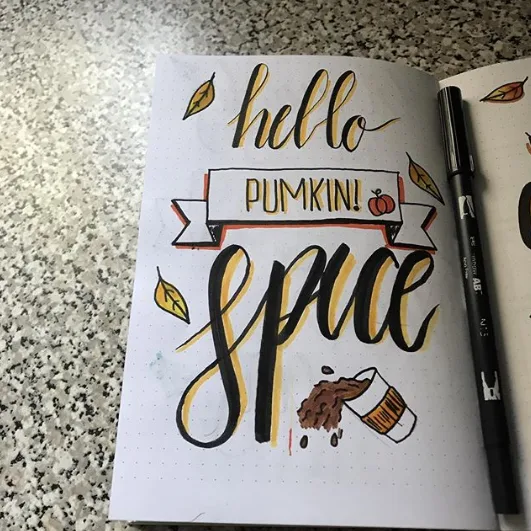 hello
PUMKIN!
spice